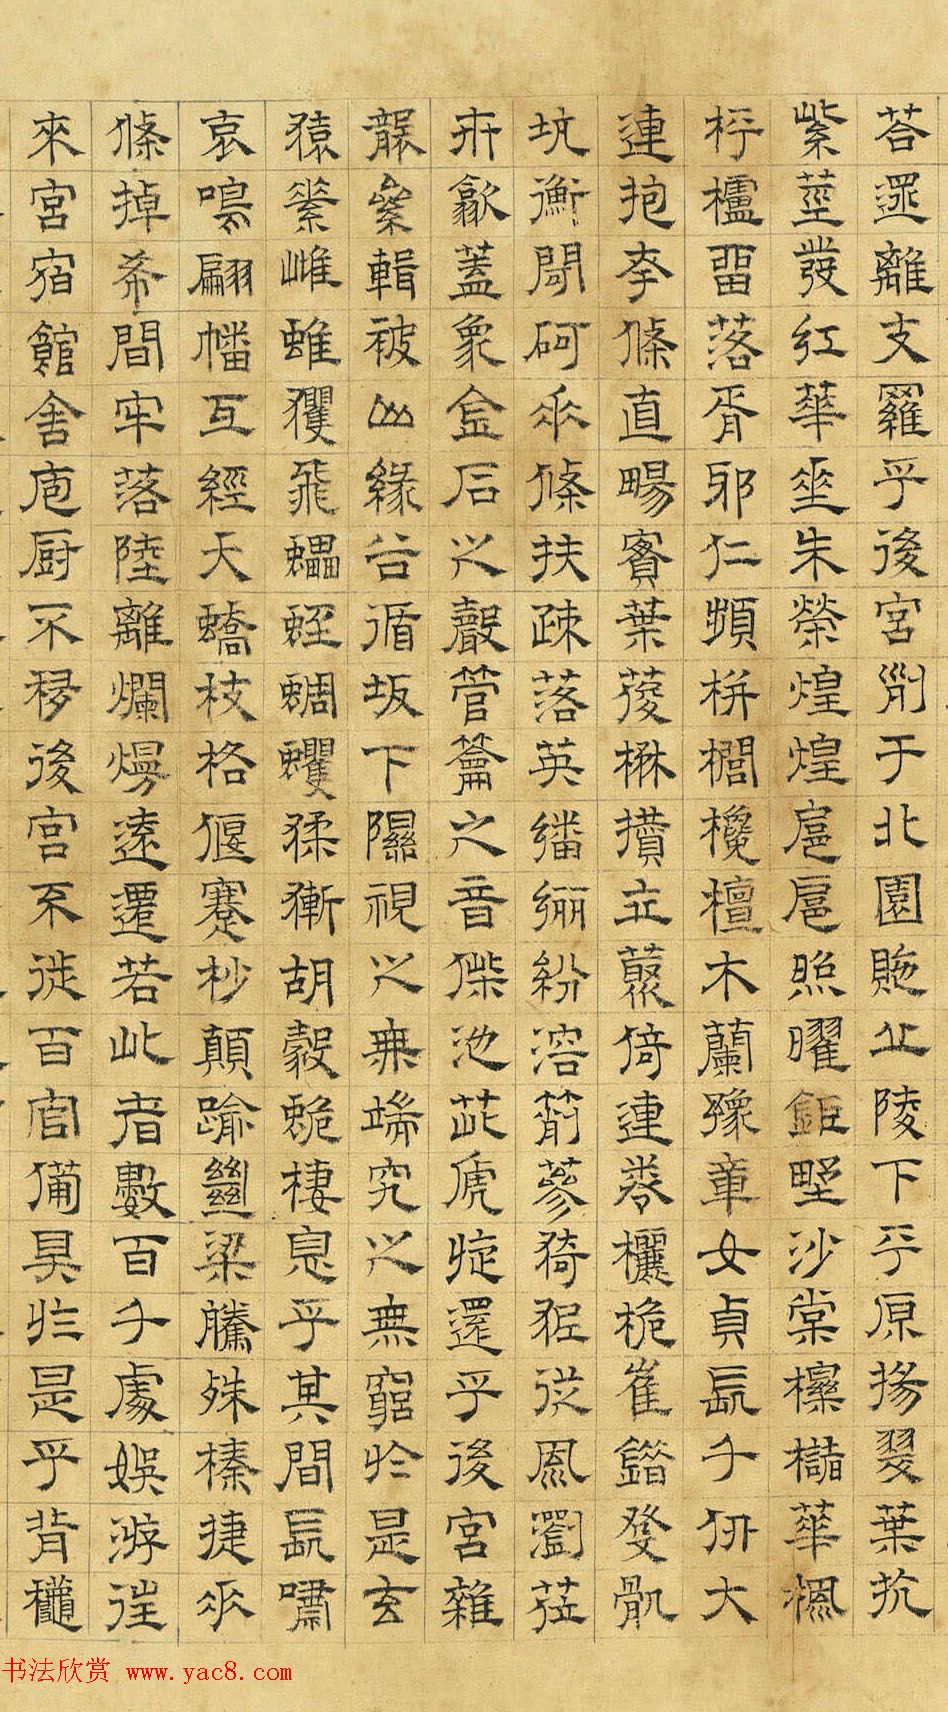 荅遝離支羅乎後宮列于北園貤丘陵下平原揚翠葉扤
紫莖發紅華垂朱榮煌煌扈扈照曜鉅野沙棠櫟櫧華楓
枰櫨留落胥邪仁頻栟櫚欃檀木蘭豫章女貞長千仞大
連抱夸條直暢實葉葰楙攢立叢倚連卷欐佹崔錯癹骫
坑衡閜砢垂條扶疎落英繙纚紛溶箾蔘猗狔從風瀏莅
卉歙蓋象金石之聲管籥之音偨池茈虒旋還乎後宮雜
襲絫輯被山緣谷循坂下隰視之無端究之無窮於是玄
猿素雌蜼玃飛蠝蛭蜩蠷猱獑胡豰蛫棲息乎其間長嘯
哀鳴翩幡互經夭蟜枝格偃蹇杪顛踰絕梁騰殊榛捷垂
條掉希間牢落陸離爛熳遠遷若此者數百千處娛游往
來宮宿館舍庖厨不移後宮不徙百官備具於是乎背龝
书法欣赏 www.yac8.com